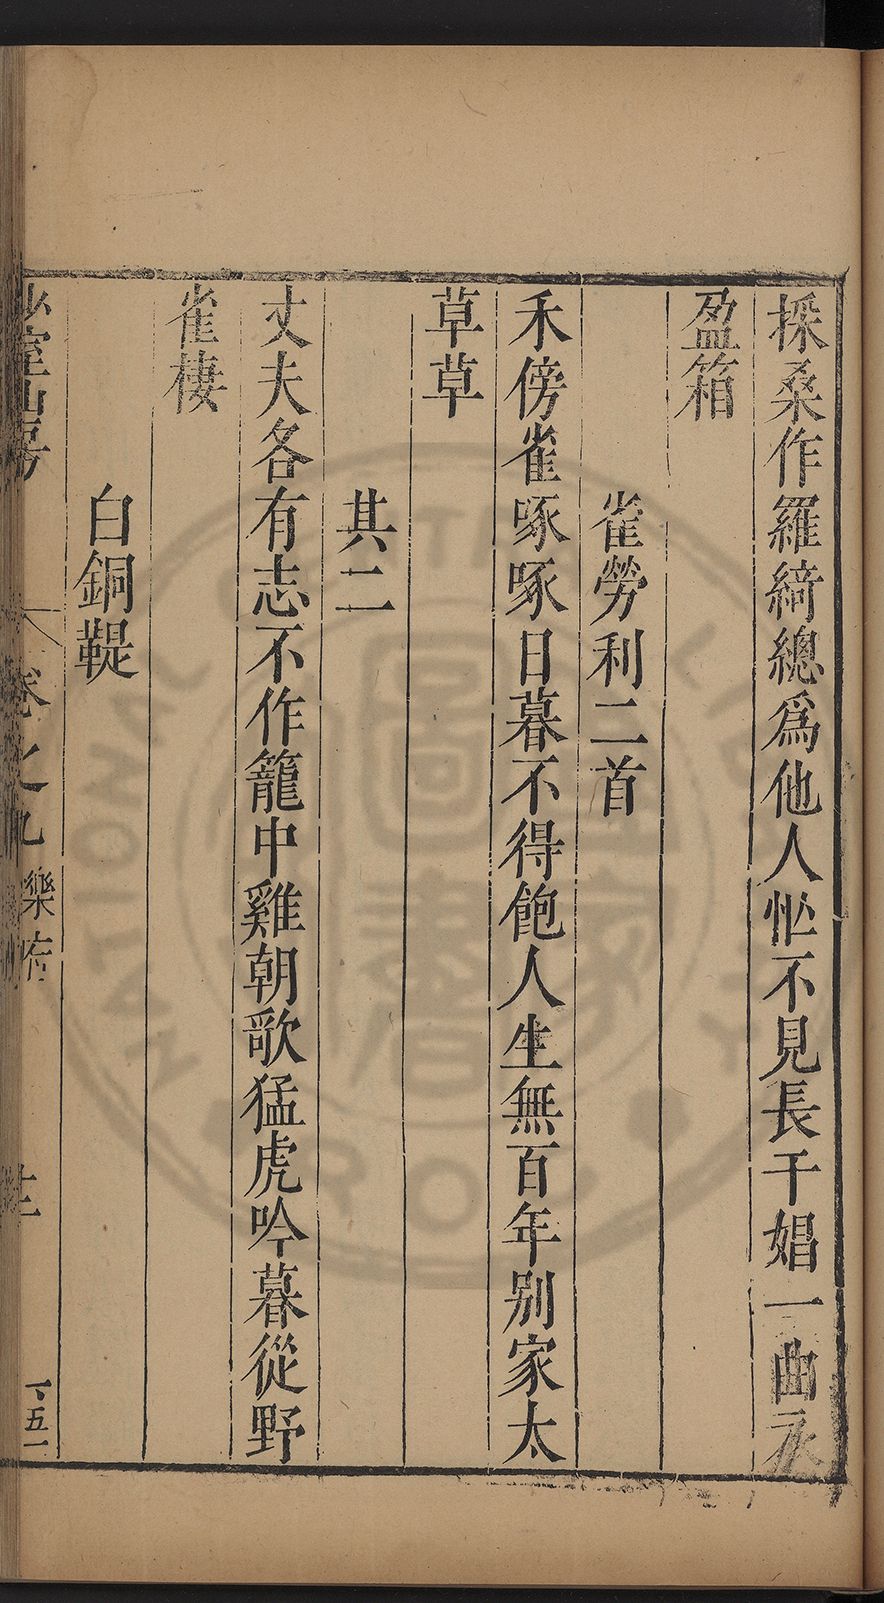 採桑作羅綺總爲他人忙不見長干娼一曲永
盈箱
雀勞利二首
禾傍雀啄啄日暮不得飽人生無百年别家太
草草
其二
丈夫各有志不作籠中雞朝歌猛虎吟暮從野
雀棲
白銅鞮
少室山房 卷之九 樂府